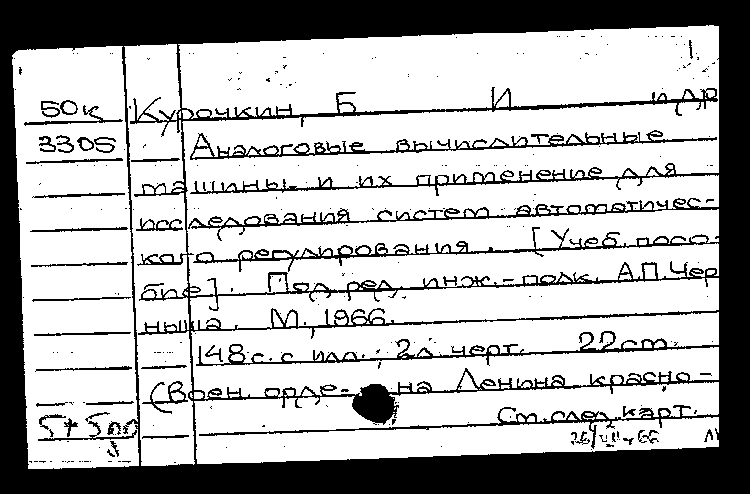 1
50к Курочкин, Б И и др
3305 Аналоговые вычислительные
машины и их применение для
исследования систем автоматичес-
кого регулирования. [Учеб. посо-
бие]. Под ред. инж.-полк. А.П. Чер
ныша. М., 1966.
148 с. с илл.; 2 л. черт. 22 см.
(Воен. орде- на Ленина красно-
5+5пп См. след. карт.